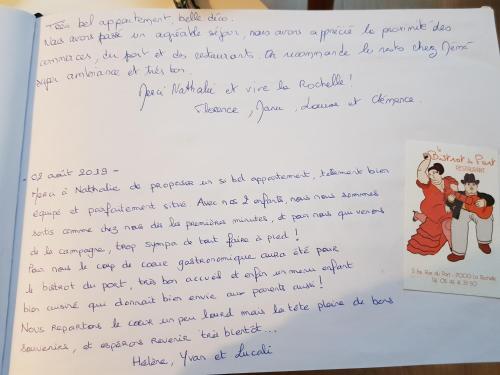 Très bel appartement, belle déco.
Nous avons passé un agréable séjour, nous avons apprécié la proximité des
commerces, du port et des restaurants. On recommande le resto chez Mémé
super ambiance et très bon.
Merci Nathalie et vive la Rochelle !
Florence, Louise et Clémence.
02 août 2019 -
Merci à Nathalie de proposer un si bel appartement, tellement bien
équipé et parfaitement situé. Avec nos 2 enfants, nous nous sommes
sentis comme chez nous dès les premières minutes, et pour nous qui venons
de la campagne, trop sympa de tout faire à pied !
Pour nous le coup de coeur gastronomique aura été pour
le bistrot du port, très bon accueil et enfin un menu enfant
bien cuisiné qui donnait bien envie aux parents aussi !
Nous repartons le coeur un peu lourd mais la tête pleine de bons
souvenirs, et espérons revenir très bientôt...
Hélène, Yvan et
le
Bistrot du Port
RESTAURANT
Rue du Port - 17000 La Rochelle